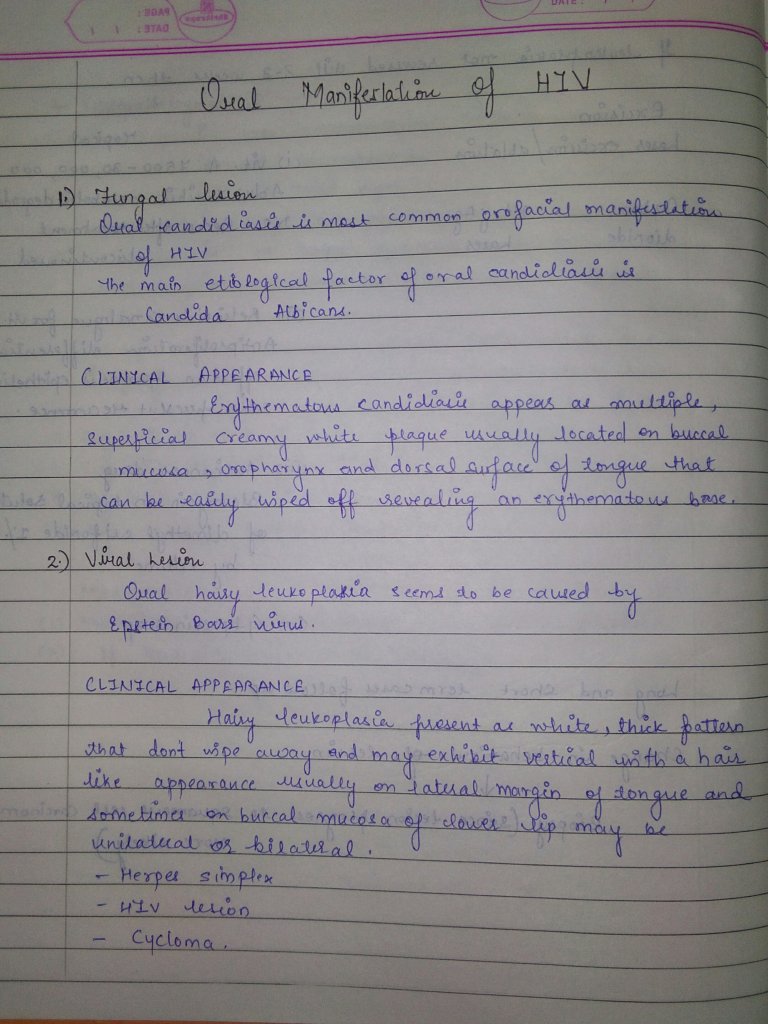 PAGE:
DATE:
DATE:
Oral Manifestation of HIV
1.) Fungal lesion
Oral candidiasis is most common orofacial manifestation
of HIV
The main etiological factor of oral candidiasis is
Candida Albicans.
CLINICAL APPEARANCE
Erythematous candidiasis appears as multiple,
superficial creamy white plaque usually located on buccal
mucosa, oropharynx and dorsal surface of tongue that
can be easily wiped off revealing an erythematous base.
2.) Viral Lesion
Oral hairy leukoplakia seems to be caused by
Epstein Barr virus.
CLINICAL APPEARANCE
Hairy leukoplasia present as white, thick pattern
that dont wipe away and may exhibit vertical with a hair
like appearance usually on lateral margin of tongue and
sometimes on buccal mucosa of lower lip may be
unilateral or bilateral.
- Herpes simplex
- HIV lesion
- Cycloma.